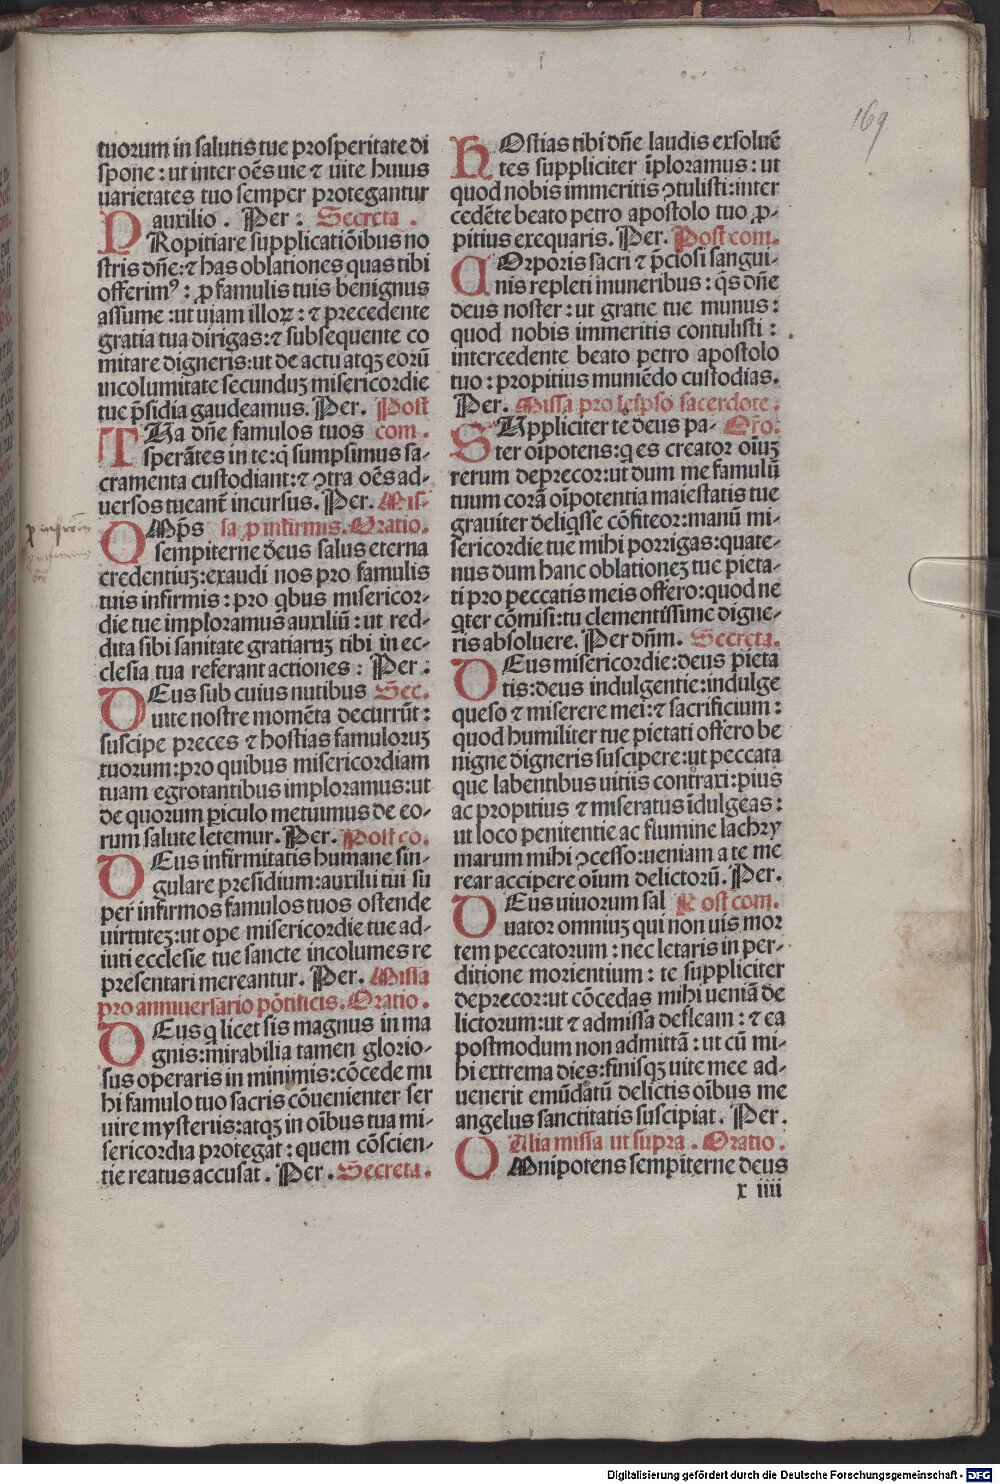 169
tuorum in salutis tue prosperitate di
spone : ut inter oēs uie ⁊ uite huius
uarietates tuo semper protegantur
auxilio . Per : Secreta .
PRopitiare supplicatiōibus no
stris dn̄e:⁊ has oblationes quas tibi
offerimꝰ : ꝓ famulis tuis benignus
assume : ut uiam illoꝝ : ⁊ precedente
gratia tua dirigas:⁊ subsequente co
mitare digneris:ut de actu atqꝫ eorū
incolumitate secunduꝫ misericordie
tue p̄sidia gaudeamus. Per. Post
THa dn̄e famulos tuos com .
sperātes in te:q̄ sumpsimus sa-
cramenta custodiant:⁊ ↄtra oēs ad-
uersos tueant̄ incursus. Per. Mis-
OMp̄s sa ꝓ infirmis. Oratio.
sempiterne deus salus eterna
credentiuꝫ:exaudi nos pro famulis
tuis infirmis : pro qbus misericor-
die tue imploramus auxiliū : ut red-
dita sibi sanitate gratiaruꝫ tibi in ec-
clesia tua referant actiones : Per :
DEus sub cuius nutibus Sec.
uite nostre momēta decurrūt :
suscipe preces ⁊ hostias famuloruꝫ
tuorum:pro quibus misericordiam
tuam egrotantibus imploramus:ut
de quorum ꝑiculo metuimus de eo-
rum salute letemur. Per. Post co.
DEus infirmitatis humane sin-
gulare presidium:auxilii tui su
per infirmos famulos tuos ostende
uirtuteꝫ:ut ope misericordie tue ad-
iuti ecclesie tue sancte incolumes re
presentari mereantur. Per. Missa
pro anniuersario pōtificis. Oratio .
DEus q licet sis magnus in ma
gnis:mirabilia tamen glorio-
sus operaris in minimis:cōcede mi
hi famulo tuo sacris cōuenienter ser
uire mysteriis:atqꝫ in oībus tua mi-
sericordia protegat : quem cōscien-
tie reatus accusat . Per . Secreta .
HOstias tibi dn̄e laudis exsoluē
tes suppliciter īploramus : ut
quod nobis immeritis ↄtulisti:inter
cedēte beato petro apostolo tuo ꝓ-
pitius exequaris. Per. Post com.
COrporis sacri ⁊ p̄ciosi sangui-
nis repleti muneribus : qs̄ dn̄e
deus noster : ut gratie tue munus :
quod nobis immeritis contulisti :
intercedente beato petro apostolo
tuo : propitius muniēdo custodias.
Per. Missa pro seipso sacerdote .
SHppliciter te deus pa- Or̄o:
ter oīpotens:q es creator oīuꝫ
rerum deprecor:ut dum me famulū
tuum corā oīpotentia maiestatis tue
grauiter deliqsse cōfiteor:manū mi-
sericordie tue mihi porrigas:quate-
nus dum hanc oblationeꝫ tue pieta-
ti pro peccatis meis offero:quod ne
qter cōmisi:tu clementissime digne-
ris absoluere. Per dn̄m. Secreta.
DEus misericordie:deus pieta
tis:deus indulgentie:indulge
queso ⁊ miserere mei:⁊ sacrificium :
quod humiliter tue pietati offero be
nigne digneris suscipere:ut peccata
que labentibus uitiis contraxi:pius
ac propitius ⁊ miseratus īdulgeas :
ut loco penitentie ac flumine lachry
marum mihi ↄcesso:ueniam a te me
rear accipere oīum delictorū. Per.
DEus uiuorum sal Post com.
uator omniuꝫ qui non uis mor
tem peccatorum : nec letaris in per-
ditione morientium : te suppliciter
deprecor:ut cōcedas mihi ueniā de
lictorum:ut ⁊ admissa defleam : ⁊ ea
postmodum non admittā : ut cū mi-
hi extrema dies:finisqꝫ uite mee ad-
uenerit emūdatū delictis oībus me
angelus sanctitatis suscipiat. Per.
Alia missa ut supra . Oratio .
OMnipotens sempiterne deus
x iiii
Digitalisierung gefördert durch die Deutsche Forschungsgemeinschaft - DFG